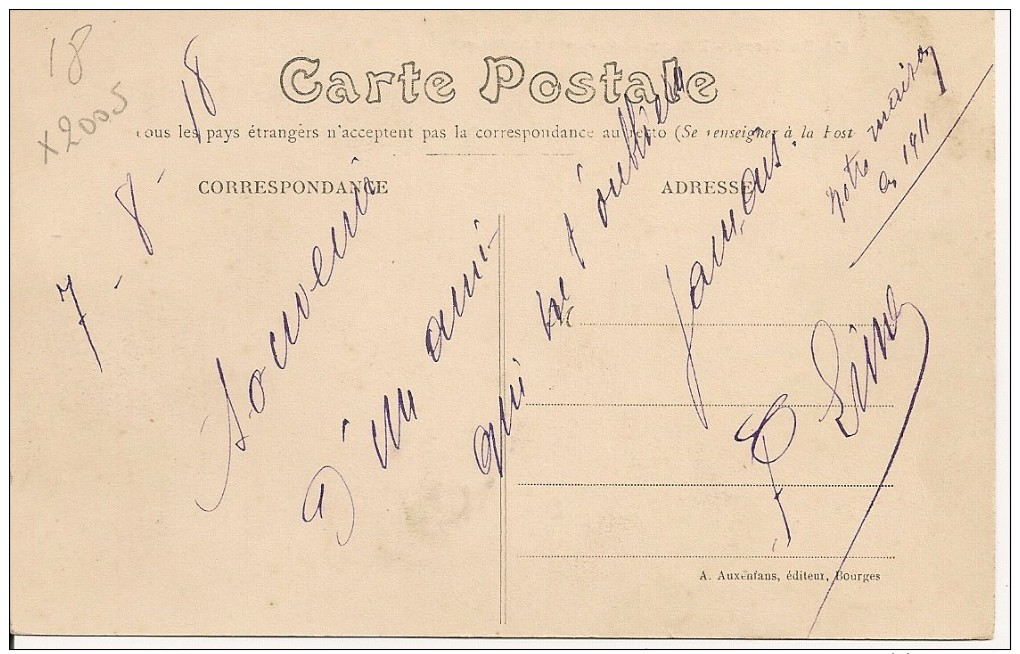 18
x2005
Carte Postale
tous les pays étrangers n'acceptent pas la correspondance au recto (Se renseigner à la Post
CORRESPONDANCE
ADRESSE
7 - 8 - 18
Souvenir
D'un ami
qui ne t'oubliera
jamais.
notre maison
en 1911
A. Auxenfans, éditeur, Bourges